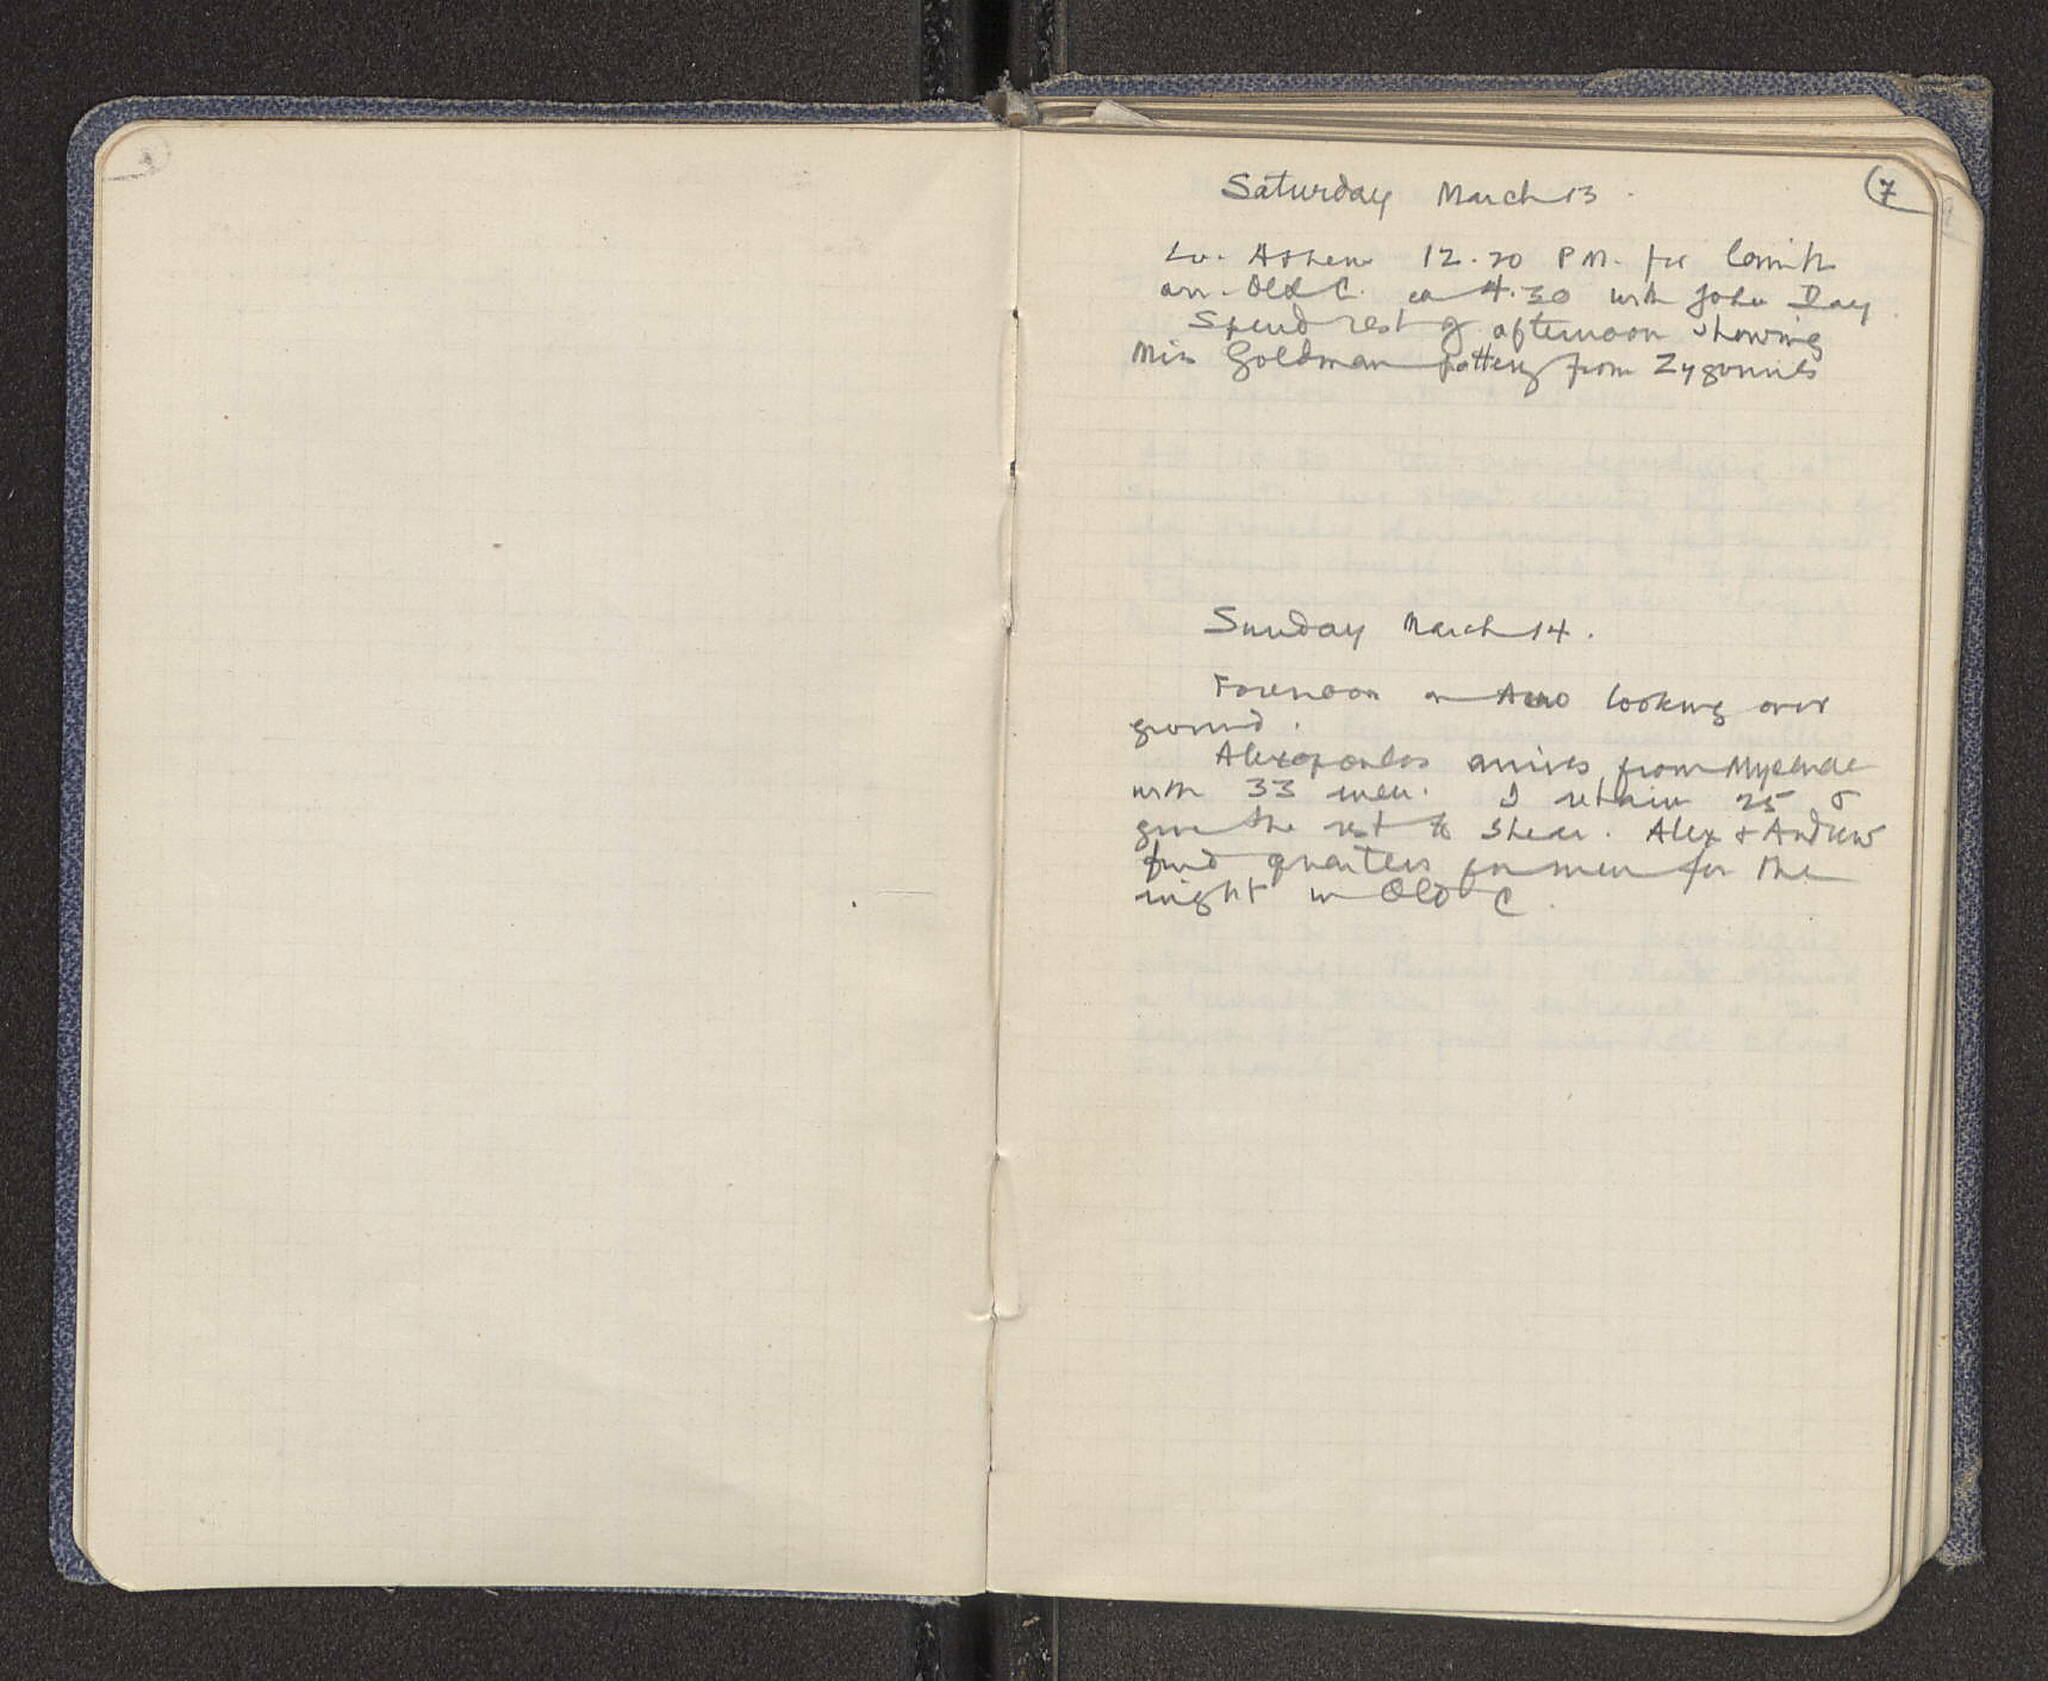 7
Saturday March 13.
Lv. Athens 12.20 P.M. for Corinth
arr. Old C. ca 4.30 with John Day.
Spend rest of afternoon showing
Miss Goldman pottery from Zygouries
Sunday March 14.
Forenoon on Acro looking over
ground.
Alexopoulos arrives from Mycenae
with 33 men. I retain 25 &
give the rest to Shear. Alex & Andrew
find quarters for men for the
night in Old C.